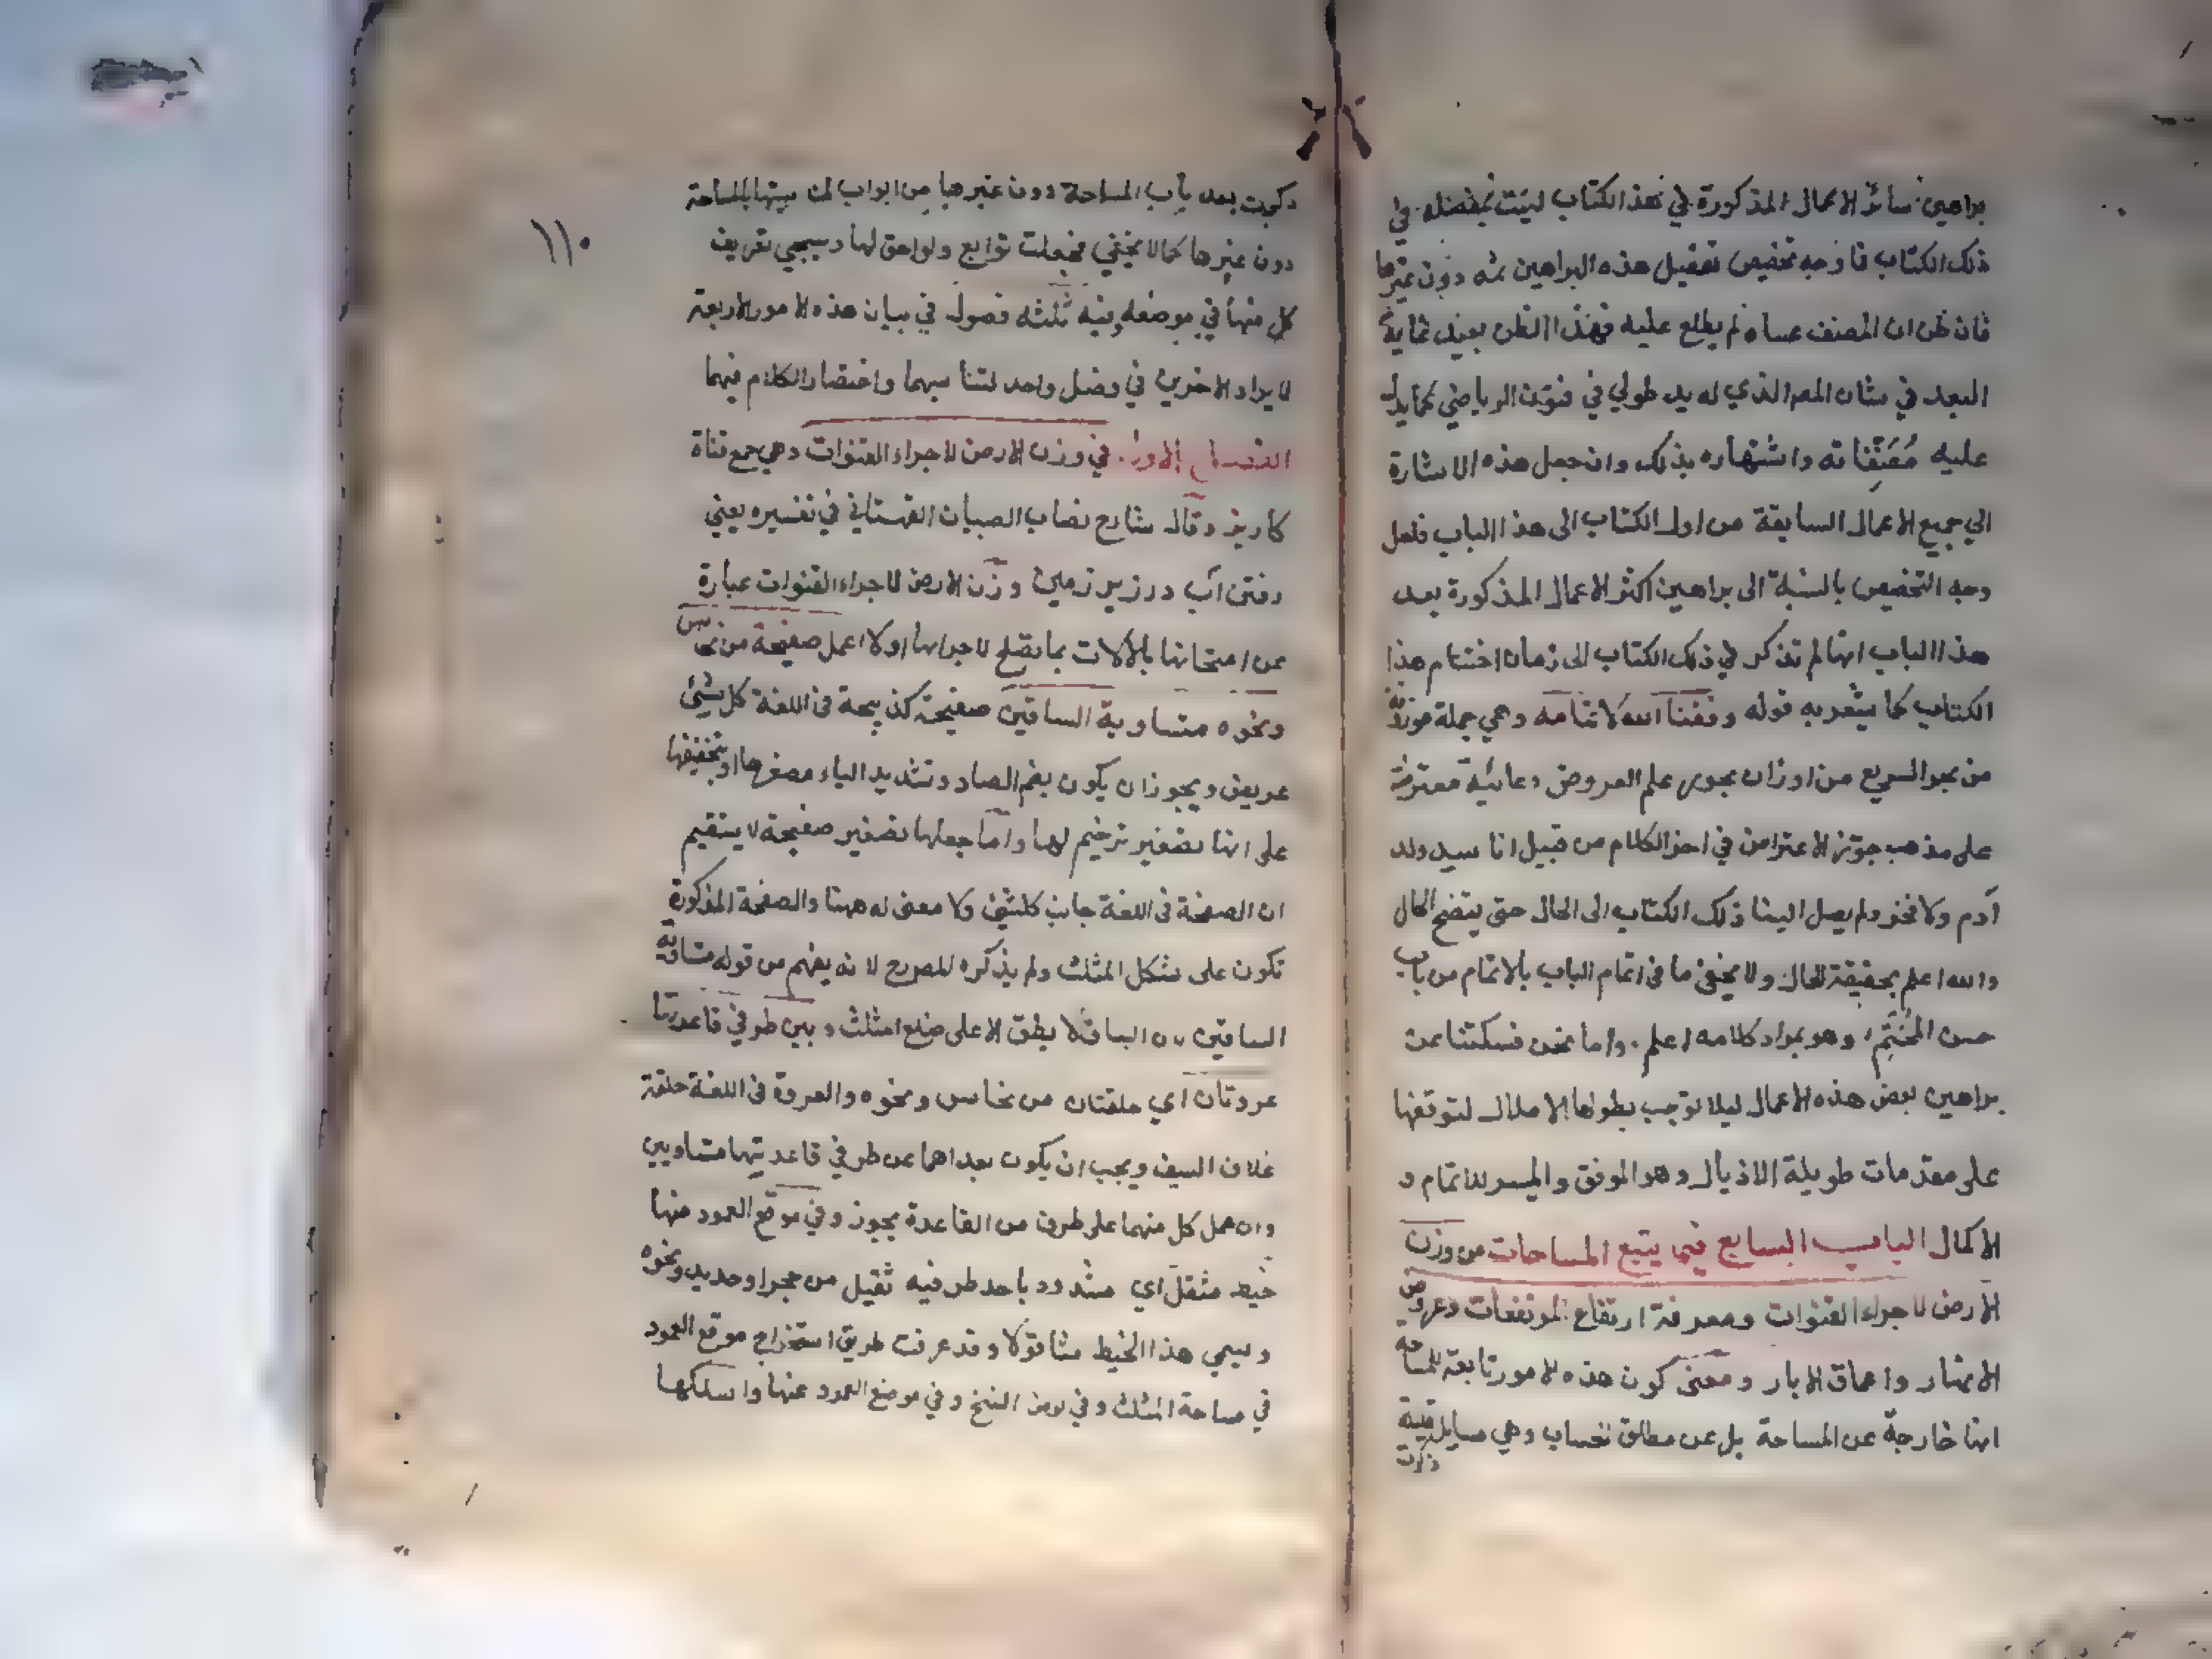 براهين سائر الاعمال المذكورة في هذا الكتاب ليست بمفصله في
ذلك الكتاب فا وجه تخصيص تفصيل هذه البراهين ثمه دون غيرها
فان ظن ان المصنف عساه لم يطلع عليه فهذا الظن بعيد غاية
البعد في شان المص الذي له يد طولي في فنون الرياضي كما يدل
عليه مصنفاته واشتهاره بذلك وان جعل هذه الاشارة
الي جميع الاعمال السابقة من اول الكتاب الى هذا الباب فلعل
وجه التخصيص بالنسبة الى براهين اكثر الاعمال المذكورة بعد
هذا الباب انها لم تذكر في ذلك الكتاب الى زمان اختتام هذا
الكتاب كما يشعر به قوله وفقنا الله لاتمامه وهي جملة موزونة
من بحر السريع من اوزان بحور علم العروض دعائية معترضة
على مذهب جوّز الاعتراض في اخر الكلام من قبيل انا سيد ولد
آدم ولا فخر ولم يصل الينا ذلك الكتاب الى الحال حتى يتضح الحال
والله اعلم بحقيقة الحال ولا يخفى ما في اتمام الباب بالاتمام من باب
حسن المختتم وهو بمراد كلامه اعلم واما نحن فسكتنا عن
براهين بعض هذه الاعمال ليلا توجب بطولها الاملال لتوقفها
على مقدمات طويلة الاذيال وهو الموفق والميسر للاتمام و
الاكمال الباب السابع فيما يتبع المساحات من وزن
الارض لاجراء القنوات ومعرفة ارتفاع المرتفعات وعروض
الانهار واعماق الابار ومعنى كون هذه الامور تابعة للمساحة
انها خارجة عن المساحة بل عن مطلق الحساب وهي مسايل
ذكرت
ذكرت بعد باب المساحة دون غيرها من ابواب
دون غيرها كما لا يخفي فجعلت توابع ولواحق لها وسيجي تعريف
كل منها في موضعه وفيه ثلثه فصول في بيان هذه الامور الاربعة
لايراد الاخرين في فصل واحد لتناسبهما واختصار الكلام فيهما
الفصل الاول في وزن الارض لاجراء القنوات وهي جمع قناة
كاريز وقال شارح نصاب الصبيان القهستاني في تفسيره يعني
رفتن آب در زير زمين وزن الارض لاجراء القنوات عبارة
عن امتحانها بالآلات بما يصلح لاجرايها اولا اعمل صفيحة من نحاس
ونحوه متساوية الساقين صفيحة كذبيحة في اللغة كل شيئ
عريض ويجوز ان يكون بضم الصاد وتشديد الياء مصغرها او بتخفيفها
على انها تصغير ترخيم لها واما جعلها تصغير صفيحة لا يستقيم
ان الصفحة في اللغة جانب كلشئ ولا معنى له ههنا والصفحة المذكورة
تكون على شكل المثلث ولم يذكره المصرح لانه يفهم من قوله متساوية
الساقين لان الساق لا يطلق الا على ضلع المثلث وبين طرفي قاعدتها
عروتان اي حلقتان من نحاس ونحوه والعروة في اللغة حلقة
غلاف السيف ويجب ان يكون بعداهما عن طرفي قاعدتيها متساويين
وان عمل كل منهما على طرف من القاعدة يجوز وفي موقع العمود منها
خيط مثقل اي مشدود باحد طرفيه ثقيل من حجر او حديد ونحوه
ويسمي هذا الخيط شاقولا وقد عرفت طريق استخراج موقع العمود
في مساحة المثلث وفي بعض النسخ وفي موضع العمود عنها واسلكها
١١٠